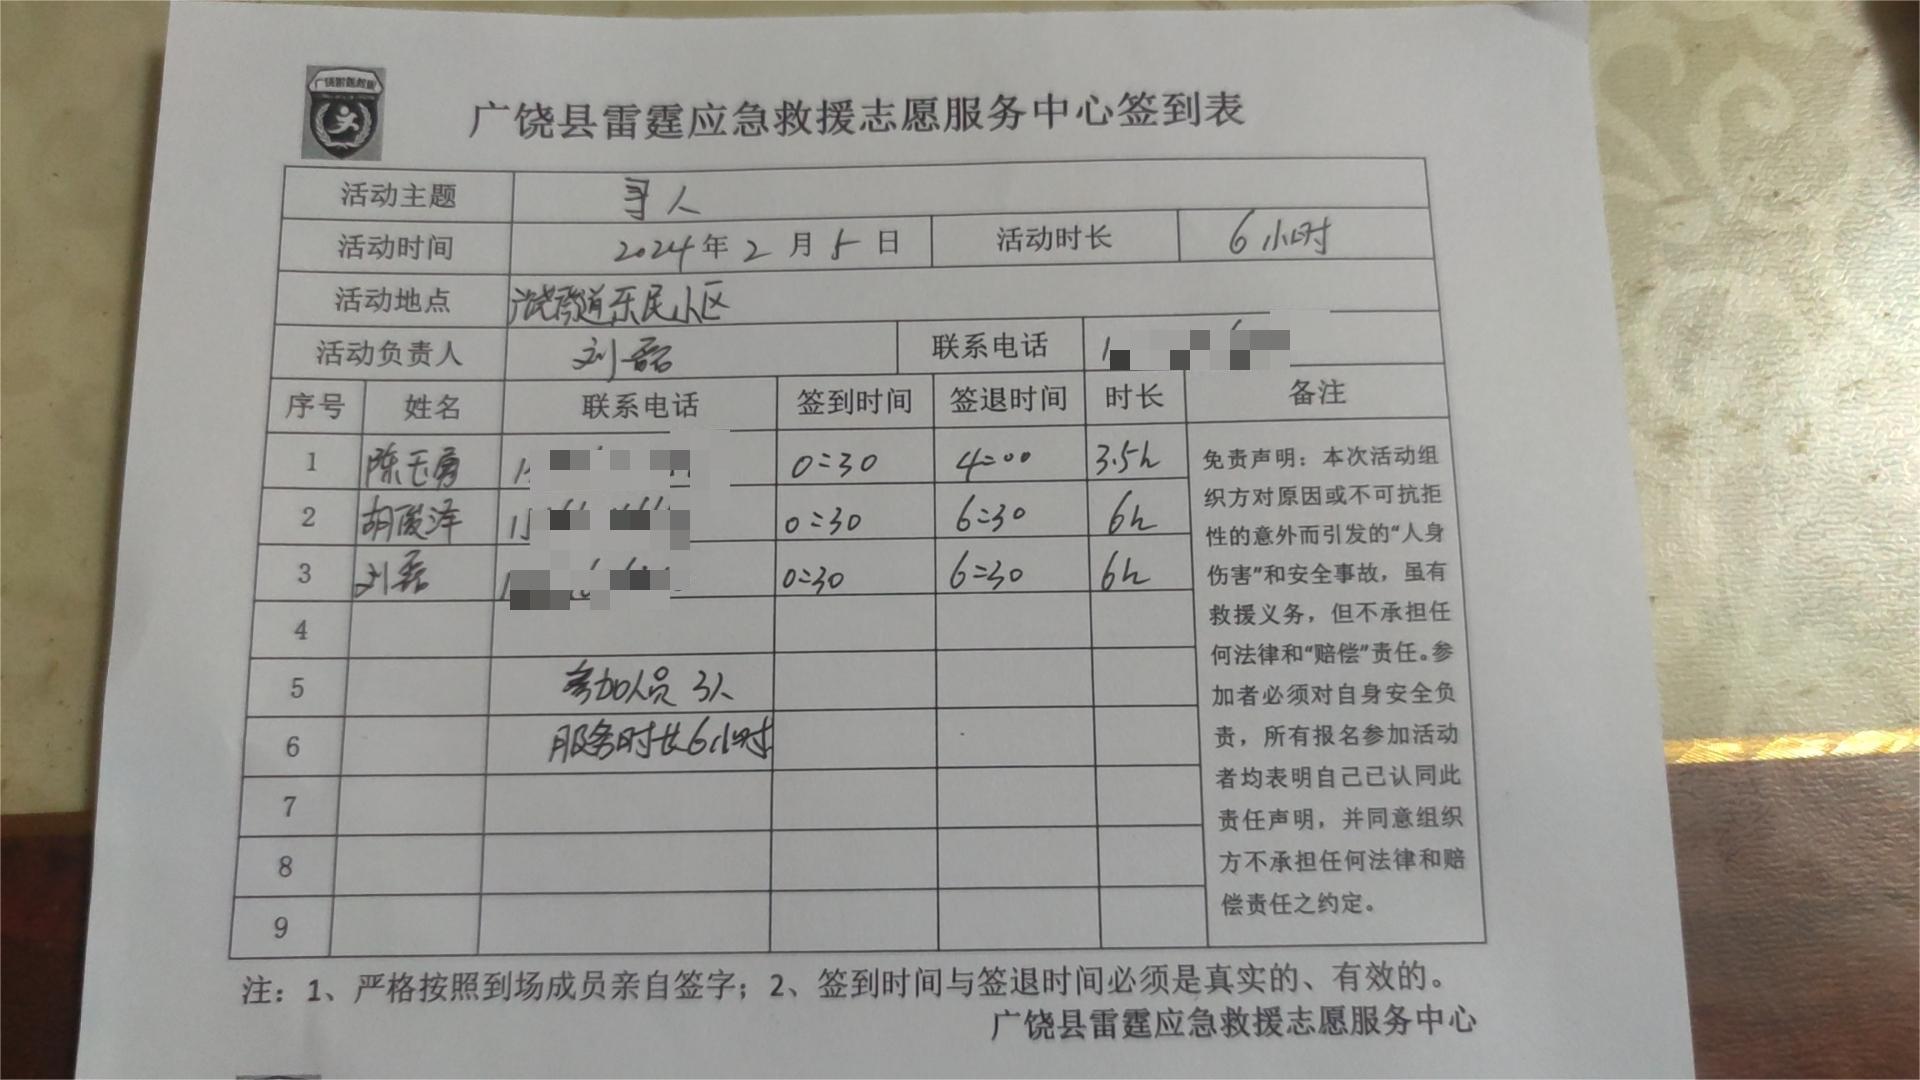 广饶雷霆救援
广饶县雷霆应急救援志愿服务中心签到表
活动主题 寻人
活动时间 2024年2月5日 活动时长 6小时
活动地点 广饶街道乐民小区
活动负责人 刘磊 联系电话
序号 姓名 联系电话 签到时间 签退时间 时长 备注
1 陈玉勇 0:30 4:00 3.5h
2 胡俊泽 0:30 6:30 6h
3 刘磊 0:30 6:30 6h
4
5 参加人员 3人
6 服务时长6小时
7
8
9
免责声明：本次活动组
织方对原因或不可抗拒
性的意外而引发的“人身
伤害”和安全事故，虽有
救援义务，但不承担任
何法律和“赔偿”责任。参
加者必须对自身安全负
责，所有报名参加活动
者均表明自己已认同此
责任声明，并同意组织
方不承担任何法律和赔
偿责任之约定。
注：1、严格按照到场成员亲自签字；2、签到时间与签退时间必须是真实的、有效的。
广饶县雷霆应急救援志愿服务中心